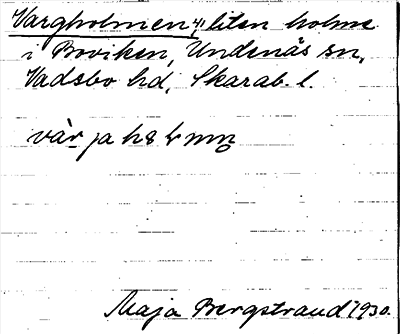 Vargholmen, liten holme
i Boviken, Undenäs sn,
Vadsbo hd, Skarab. l.
Maja Bergstrand 1930.